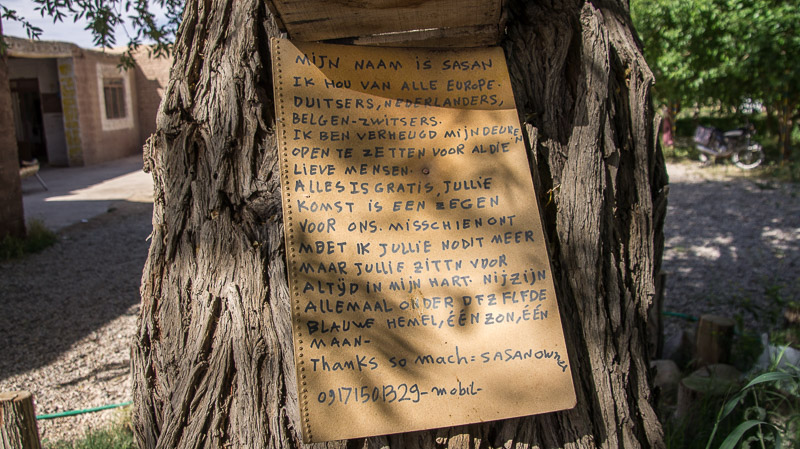 MIJN NAAM IS SASAN
IK HOU VAN ALLE EUROPE.
DUITSERS, NEDERLANDERS,
BELGEN-ZWITSERS.
IK BEN VERHEUGD MIJN DEUREN
OPEN TE ZETTEN VOOR AL DIE
LIEVE MENSEN.
ALLES IS GRATIS, JULLIE
KOMST IS EEN ZEGEN
VOOR ONS. MISSCHIEN ONT
MOET IK JULLIE NOOIT MEER
MAAR JULLIE ZITTN VOOR
ALTYD IN MIJN HART. NIJ ZIJN
ALLEMAAL ONDER DFZFLFDE
BLAUWE HEMEL, ÉÉN ZON, ÉÉN
MAAN-
Thanks so mach = SASAN OWNER
09171501329-mobil-